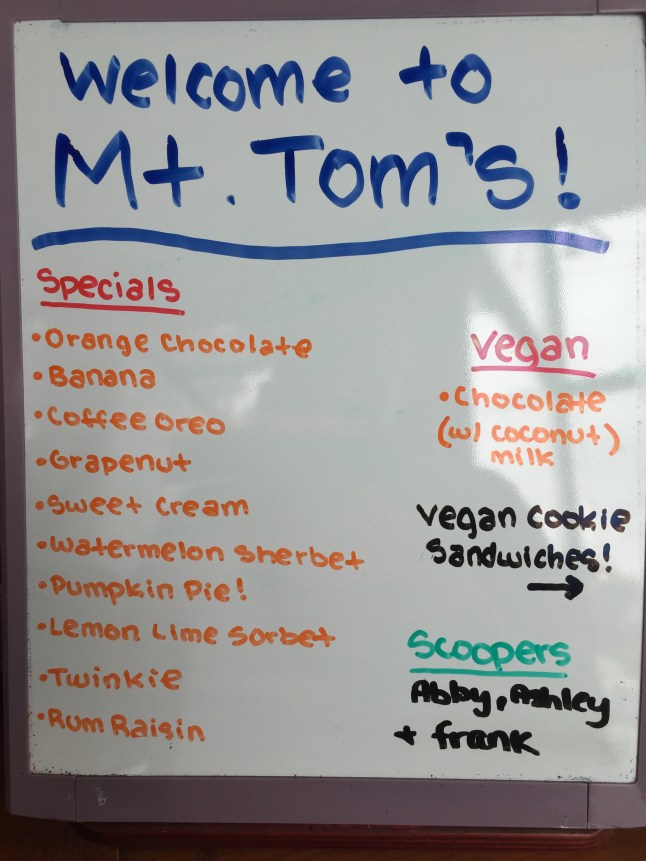 Welcome to
Mt. Tom's!
Specials
• Orange Chocolate
• Banana
• Coffee Oreo
• Grapenut
• Sweet Cream
• Watermelon Sherbet
• Pumpkin Pie!
• Lemon Lime Sorbet
• Twinkie
• Rum Raisin
Vegan
• Chocolate
(w/ coconut)
milk
Vegan Cookie
Sandwiches!
→
Scoopers
Abby, Ashley
+ frank